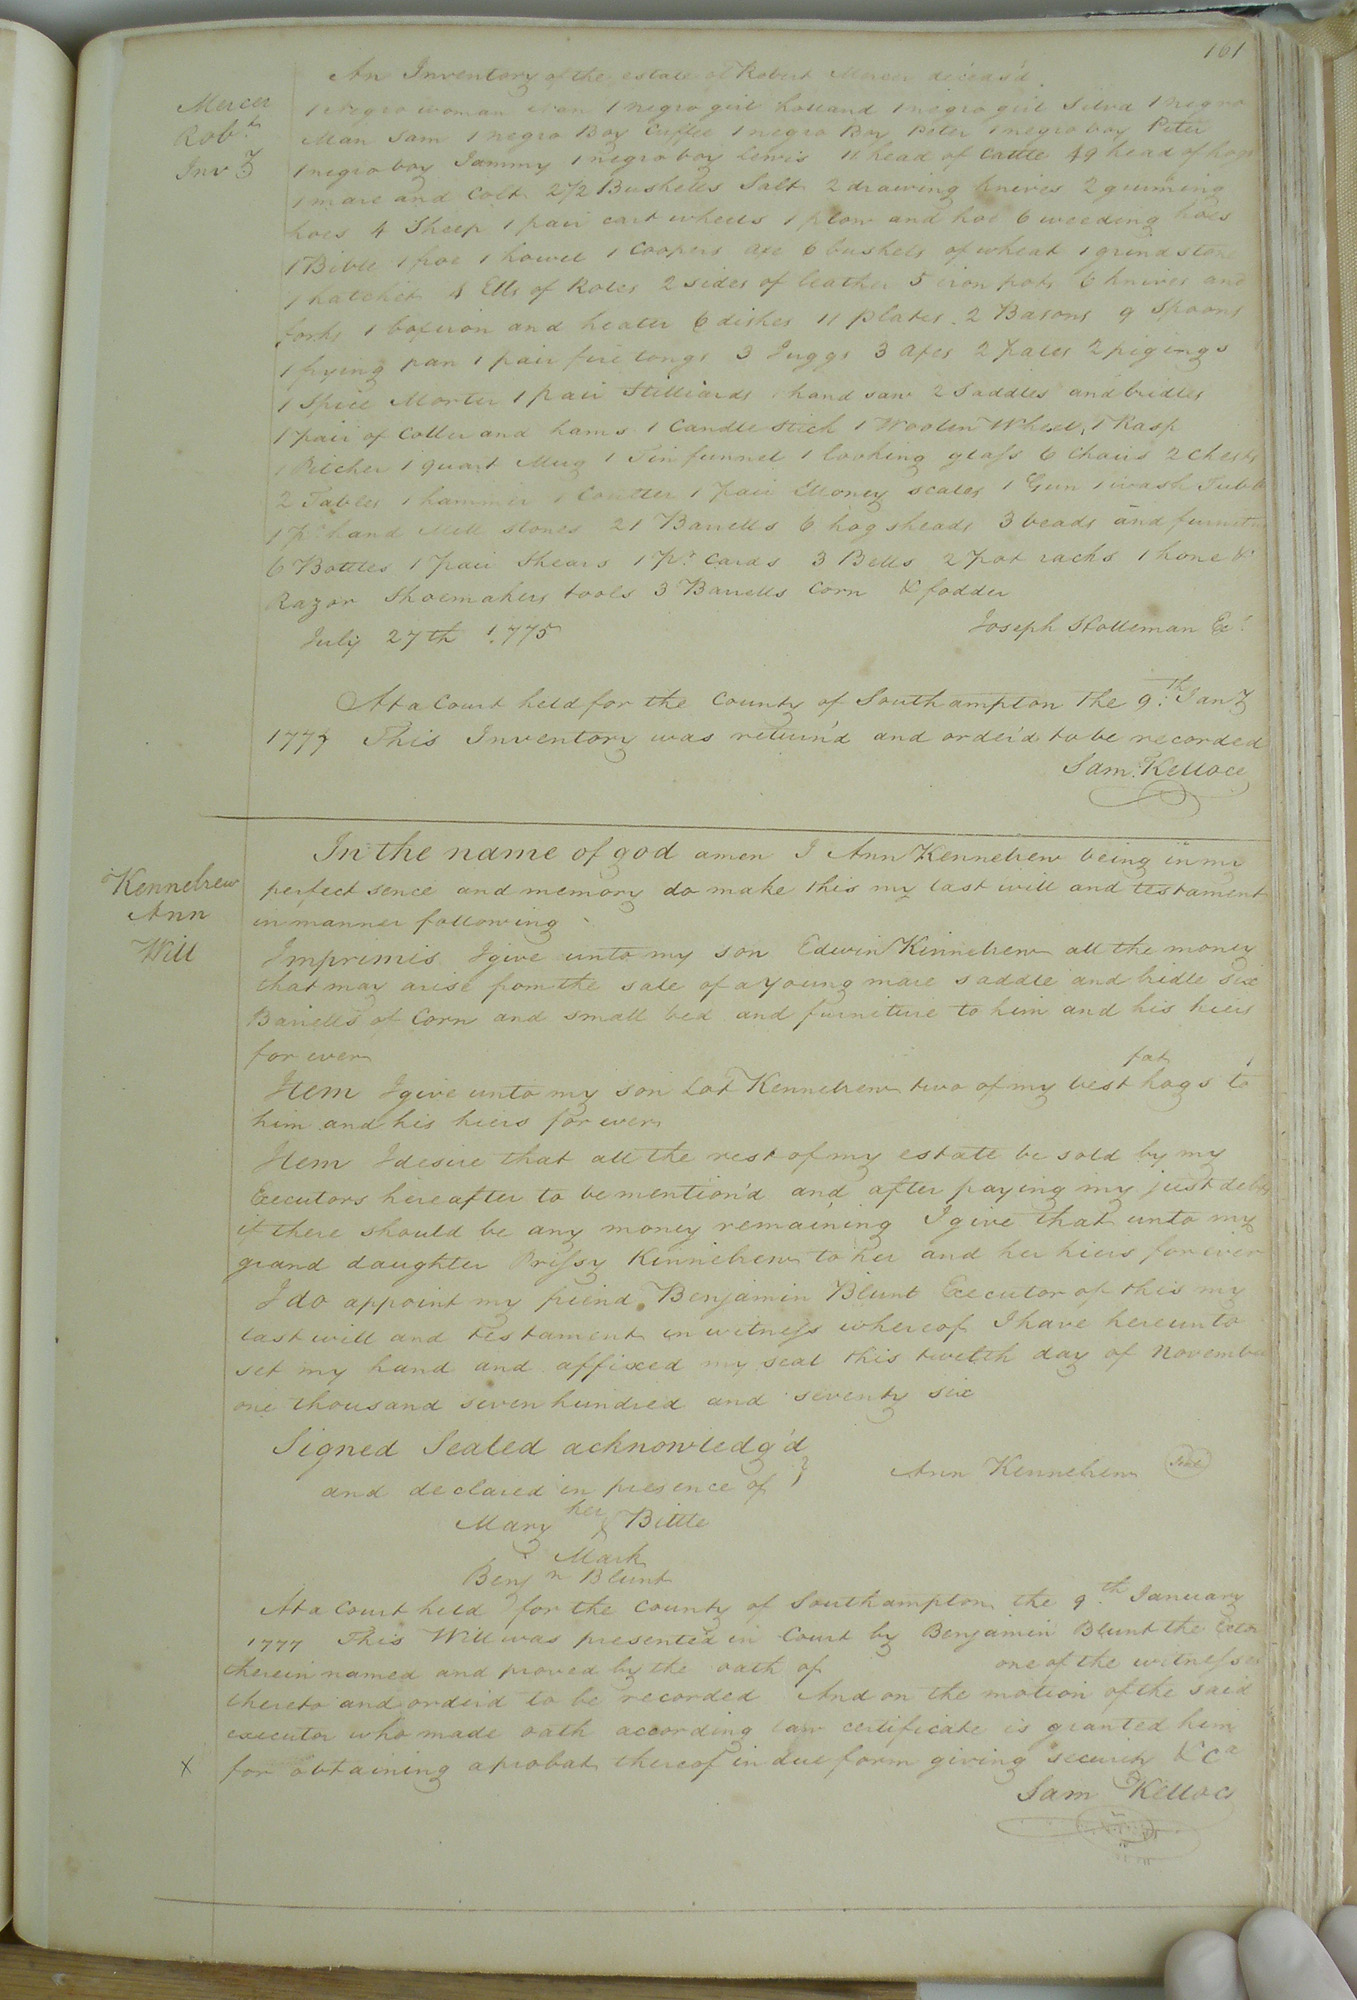 161
An Inventory of the estate of Robert Mercer deceas'd
Mercer
Robt
Invy
1 Negro woman 1 negro girl holland 1 negro girl Silva 1 negro
Man Sam 1 negro Boy Cuffee 1 negro Boy Peter 1 negro boy Peter
1 negro boy Jammy 1 negro boy Lewis 11 head of Cattle 49 head of hogs
1 mare and Colt 2 1/2 Bushells Salt 2 drawing knives 2 gruming
hoes 4 Sheep 1 pair cart wheels 1 plow and hoe 6 weeding hoes
1 Bible 1 froe 1 howel 1 Coopers axe 6 bushels of wheat 1 grind stone
1 hatchet 4 Ells of Roles 2 sides of leather 5 iron pots 6 knives and
forks 1 box iron and heater 6 dishes 11 plates 2 Basons 9 Spoons
1 frying pan 1 pair fire tongs 3 Juggs 3 axes 2 pales 2 pigings
1 Spice Morter 1 pair Stilliards 1 hand saw 2 Saddles and bridles
1 pair of Coller and hams 1 Candle stick 1 Woolen Wheel, 1 Rasp
1 Pitcher 1 quart Mug 1 Tin funnel 1 looking glass 6 chairs 2 Chests
2 Tables 1 hammer 1 Coulter 1 pair Money scales 1 Gun 1 wash Tubb
1 pr hand Mill stones 21 Barrells 6 hogsheads 3 beads and furniture
6 Bottles 1 pair Shears 1 pr Cards 3 Bells 2 pot racks 1 hone &
Razor Shoemakers tools 3 Barrells Corn & fodder
July 27th 1775
Joseph Holleman Exr
At a Court held for the County of Southampton the 9th Jany
1777 This Inventory was return'd and order'd to be recorded
Sam: Kelloce
Kennebrew
Ann
Will
In the name of god amen I Ann Kennebrew being in my
perfect sence and memory do make this my last will and testament
in manner following
Imprimis I give unto my son Edwin Kinnebrew all the money
that may arise from the sale of a young mare saddle and bridle six
Barrells of Corn and small bed and furniture to him and his hiers
for ever
Item I give unto my son Lot Kennebrew two of my best fat hogs to
him and his hiers for ever
Item I desire that all the rest of my estate be sold by my
Executors hereafter to be mention'd and after paying my just debts
if there should be any money remaining I give that unto my
grand daughter Prissy Kinnebrew to her and her hiers for ever
I do appoint my friend Benjamin Blunt Executor of this my
last will and testament in witness whereof I have hereunto
set my hand and affixed my seal this twelth day of November
one thousand seven hundred and seventy six
Signed Sealed acknowledg'd
and declared in presence of
Ann Kennebrew Seal
her
Mary X Bittle
Mark
Benjn Blunt
At a Court held for the County of Southampton the 9th January
1777 This Will was presented in Court by Benjamin Blunt the Exctor
therein named and proved by the oath of one of the witnesses
thereto and order'd to be recorded And on the motion of the said
executor who made oath according law certificate is granted him
X for obtaining a probat thereof in due form giving security &Ca
Sam Kelloce